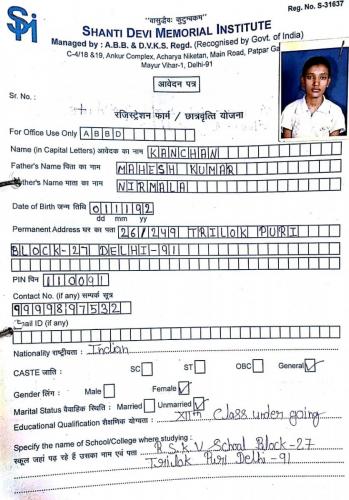 "वासुद्धैव कुटुम्बकम"
Reg. No. S-31637
SHANTI DEVI MEMORIAL INSTITUTE
Managed by : A.B.B. & D.V.K.S. Regd. (Recognised by Govt. of India)
C-4/18 &19, Ankur Complex, Acharya Niketan, Main Road, Patpar Ga
Mayur Vihar-1, Delhi-91
आवेदन पत्र
Sr. No. :
रजिस्ट्रेशन फार्म / छात्रवृत्ति योजना
For Office Use Only A B B D
Name (in Capital Letters) आवेदक का नाम KANCHAN
Father's Name पिता का नाम MAHESH KUMAR
other's Name माता का नाम NIRMALA
Date of Birth जन्म तिथि 011192
dd mm yy
Permanent Address घर का पता 26/249 TRILOK PURI
BLOCK-27 DELHI-91
PIN पिन 110091
Contact No. (if any) सम्पर्क सूत्र
9999897532
Email ID (if any)
Nationality राष्ट्रीयता : Indian
CASTE जाति : SC ST OBC General ✓
Gender लिंग : Male Female ✓
Marital Status वैवाहिक स्थिति : Married Unmarried ✓
Educational Qualification शैक्षणिक योग्यता : XIIth Class under going
Specify the name of School/College where studying :
स्कूल जहां पढ़ रहे हैं उसका नाम एवं पता R.S.K.V School Block-27
Trilok Puri Delhi-91